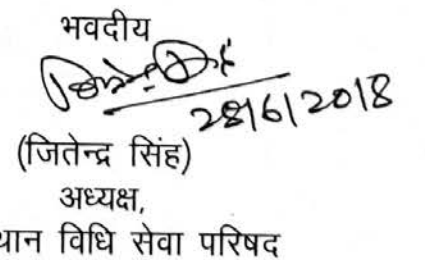 भवदीय
28/6/2018
(जितेन्द्र सिंह)
अध्यक्ष,
थान विधि सेवा परिषद